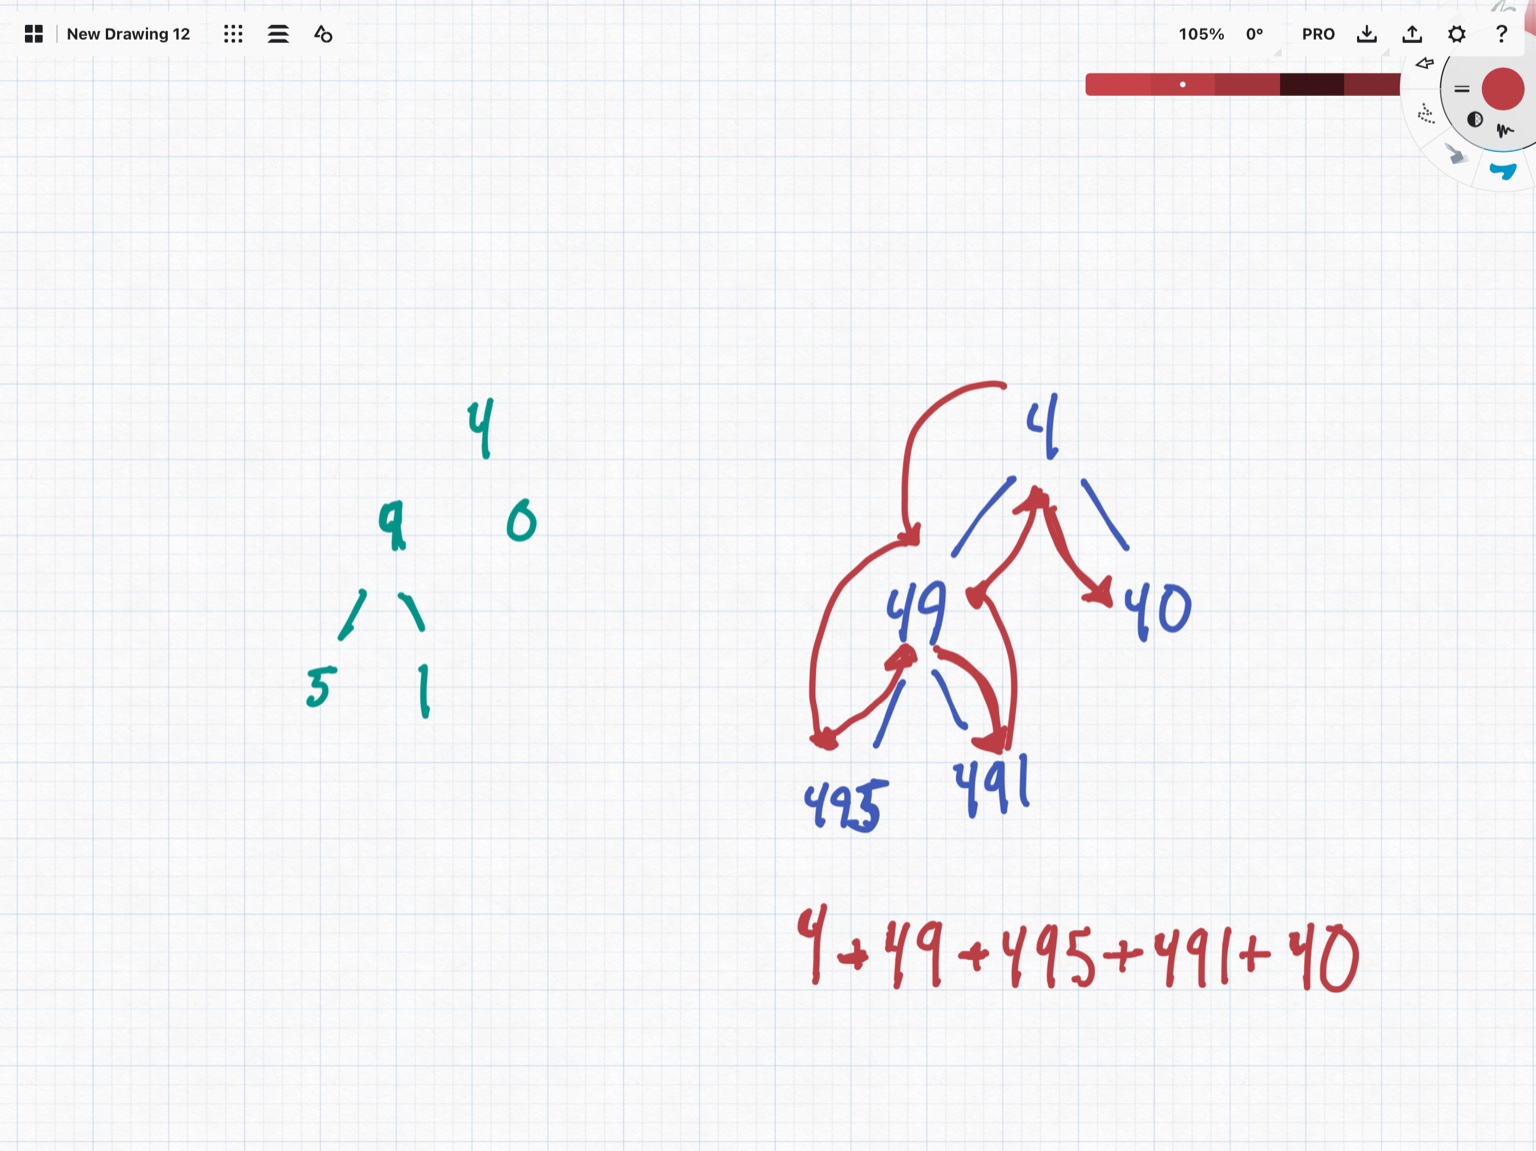 New Drawing 12 105% 0° PRO ?
4
9 0
5 1
4
49 40
495 491
4+49+495+491+40